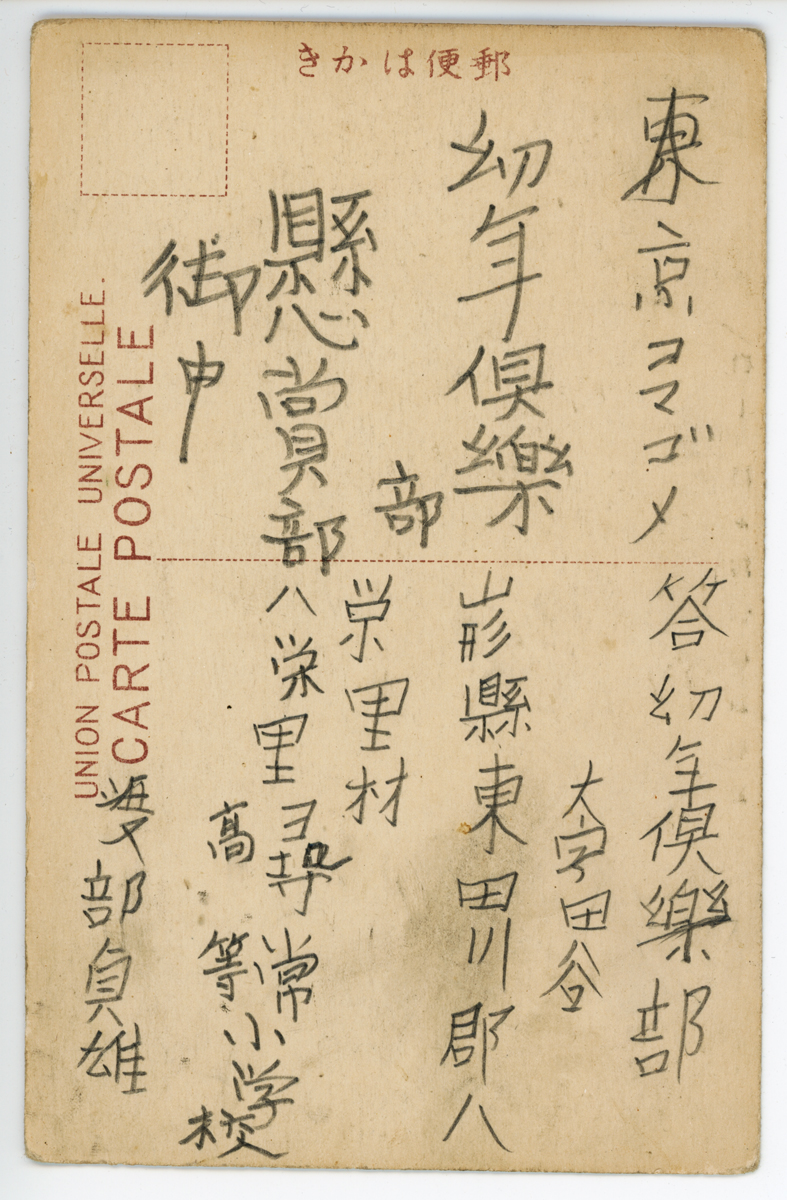 きかは便郵
東京コマゴメ
幼年倶樂
部
懸賞部
御中
答幼年倶樂部
大字田谷
山形縣東田川郡八
栄里村
八栄里尋常
高等
小学校
部貞雄
UNION POSTALE UNIVERSELLE.
CARTE POSTALE